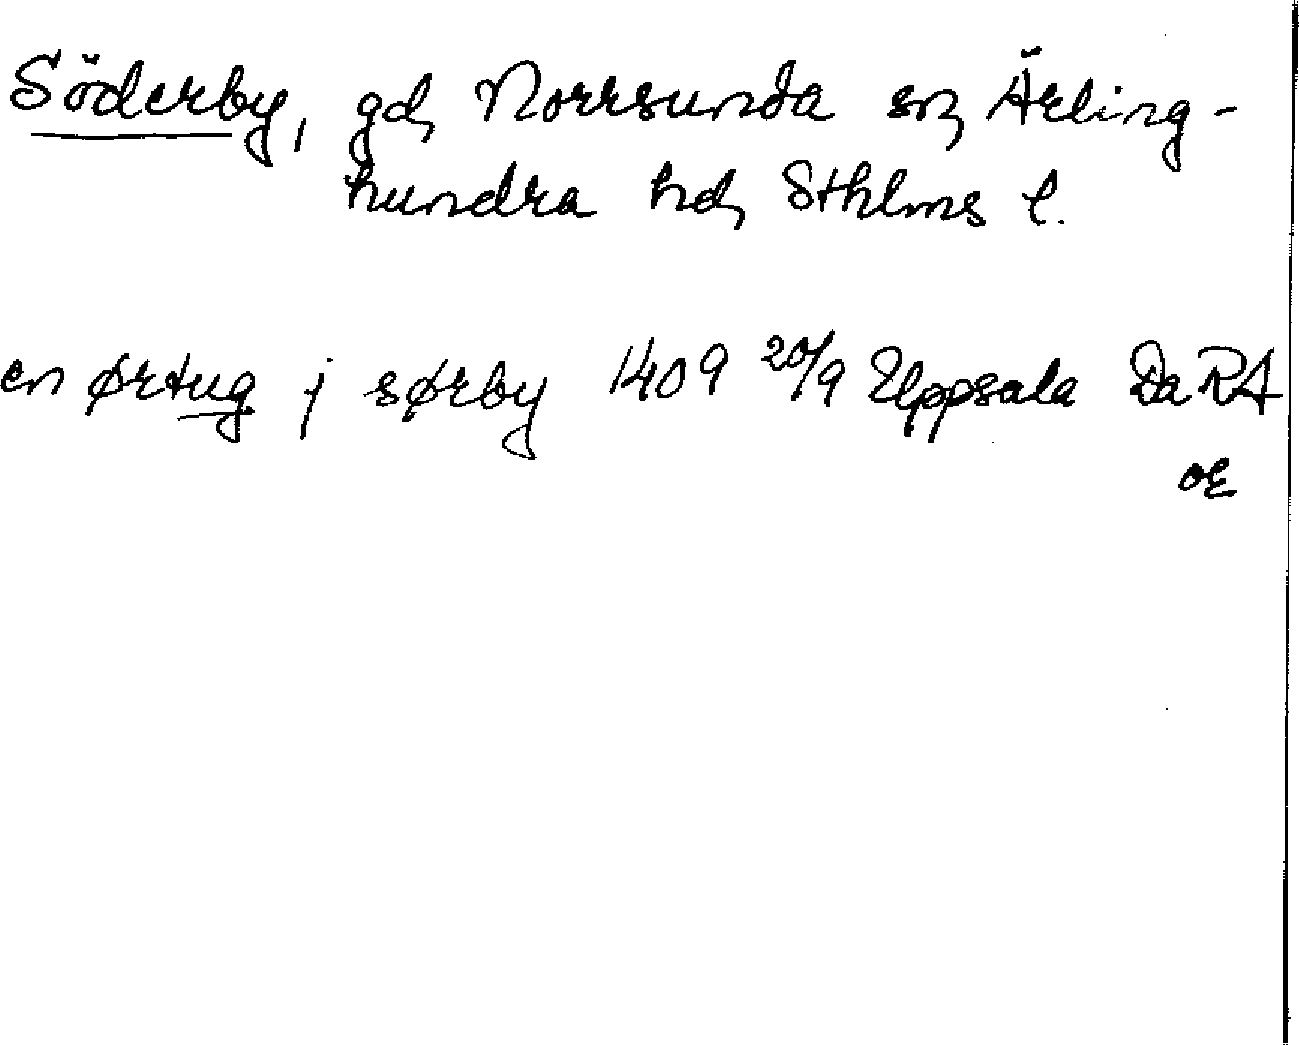 Söderby, gd, Norrsunda sn, Ärling-
hundra hd, Sthlms l.
en ørtug j sørby 1409 20/9 Uppsala Da RA